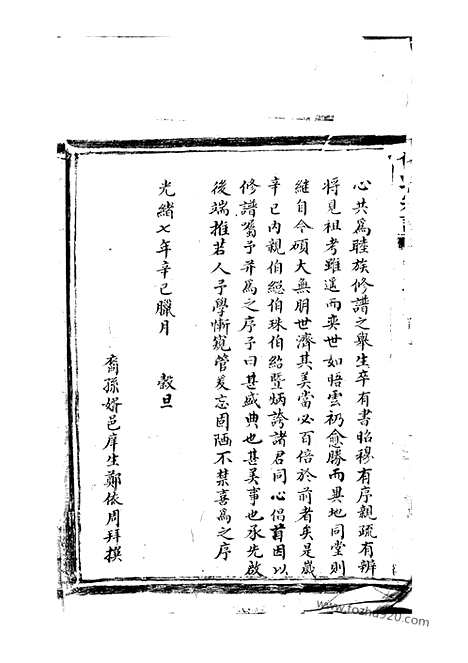 心共為睦族修譜之舉生卒有書昭穆有序親疏有辨
將見祖考雖遥而奕世如悟雲礽愈勝而異地同堂則
繼自今碩大無朋世濟其美當必百倍於前者矣是歲
辛巳內親伯總伯珠伯紹暨炳誇諸君同心倡首因以
修譜囑予并為之序予曰甚盛典也甚美事也承先啟
後端推若人予學慚窺管爰忘固陋不禁喜為之序
光緒七年辛巳臘月 穀旦
裔孫婿邑庠生鄭依周拜撰
www.fozhu920.com